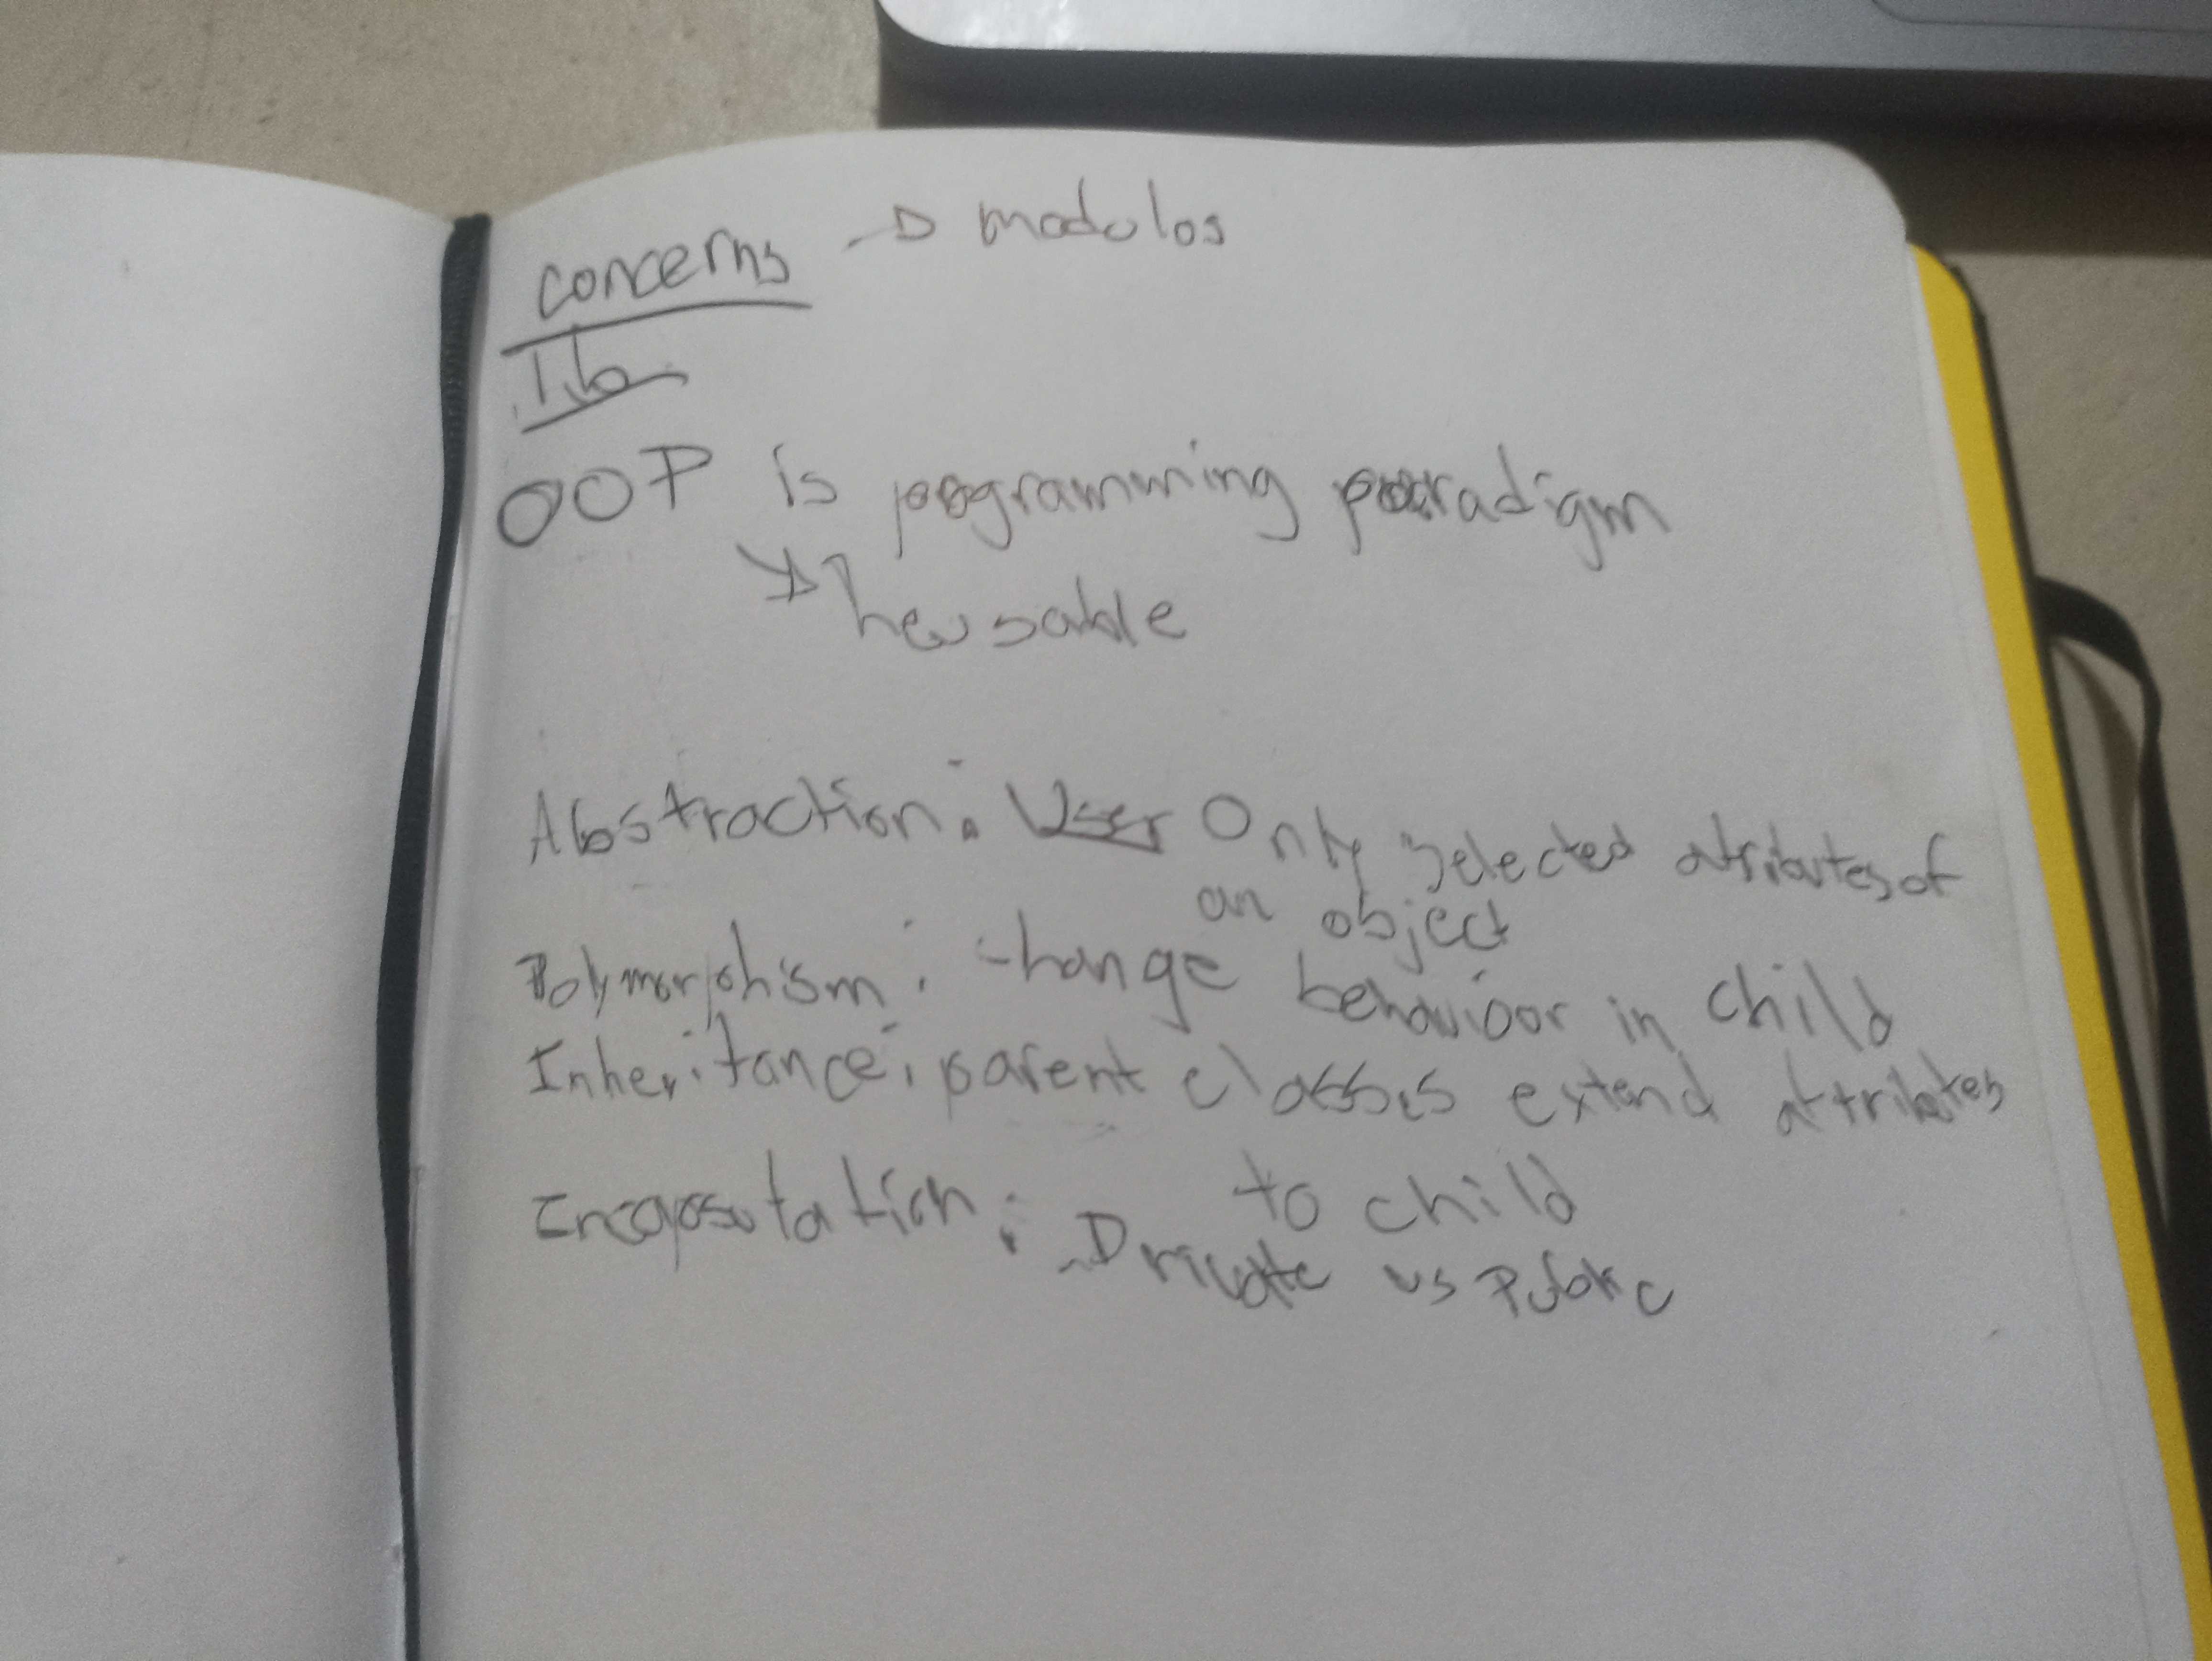 concerns → modulos
OOP is programming paradigm
→ reusable
Abstraction: User Only selected atributes of
an object
Polymorphism: change behaviour in child
Inheritance: parent classes extend attributes
to child
Encapsulation: Private vs Public